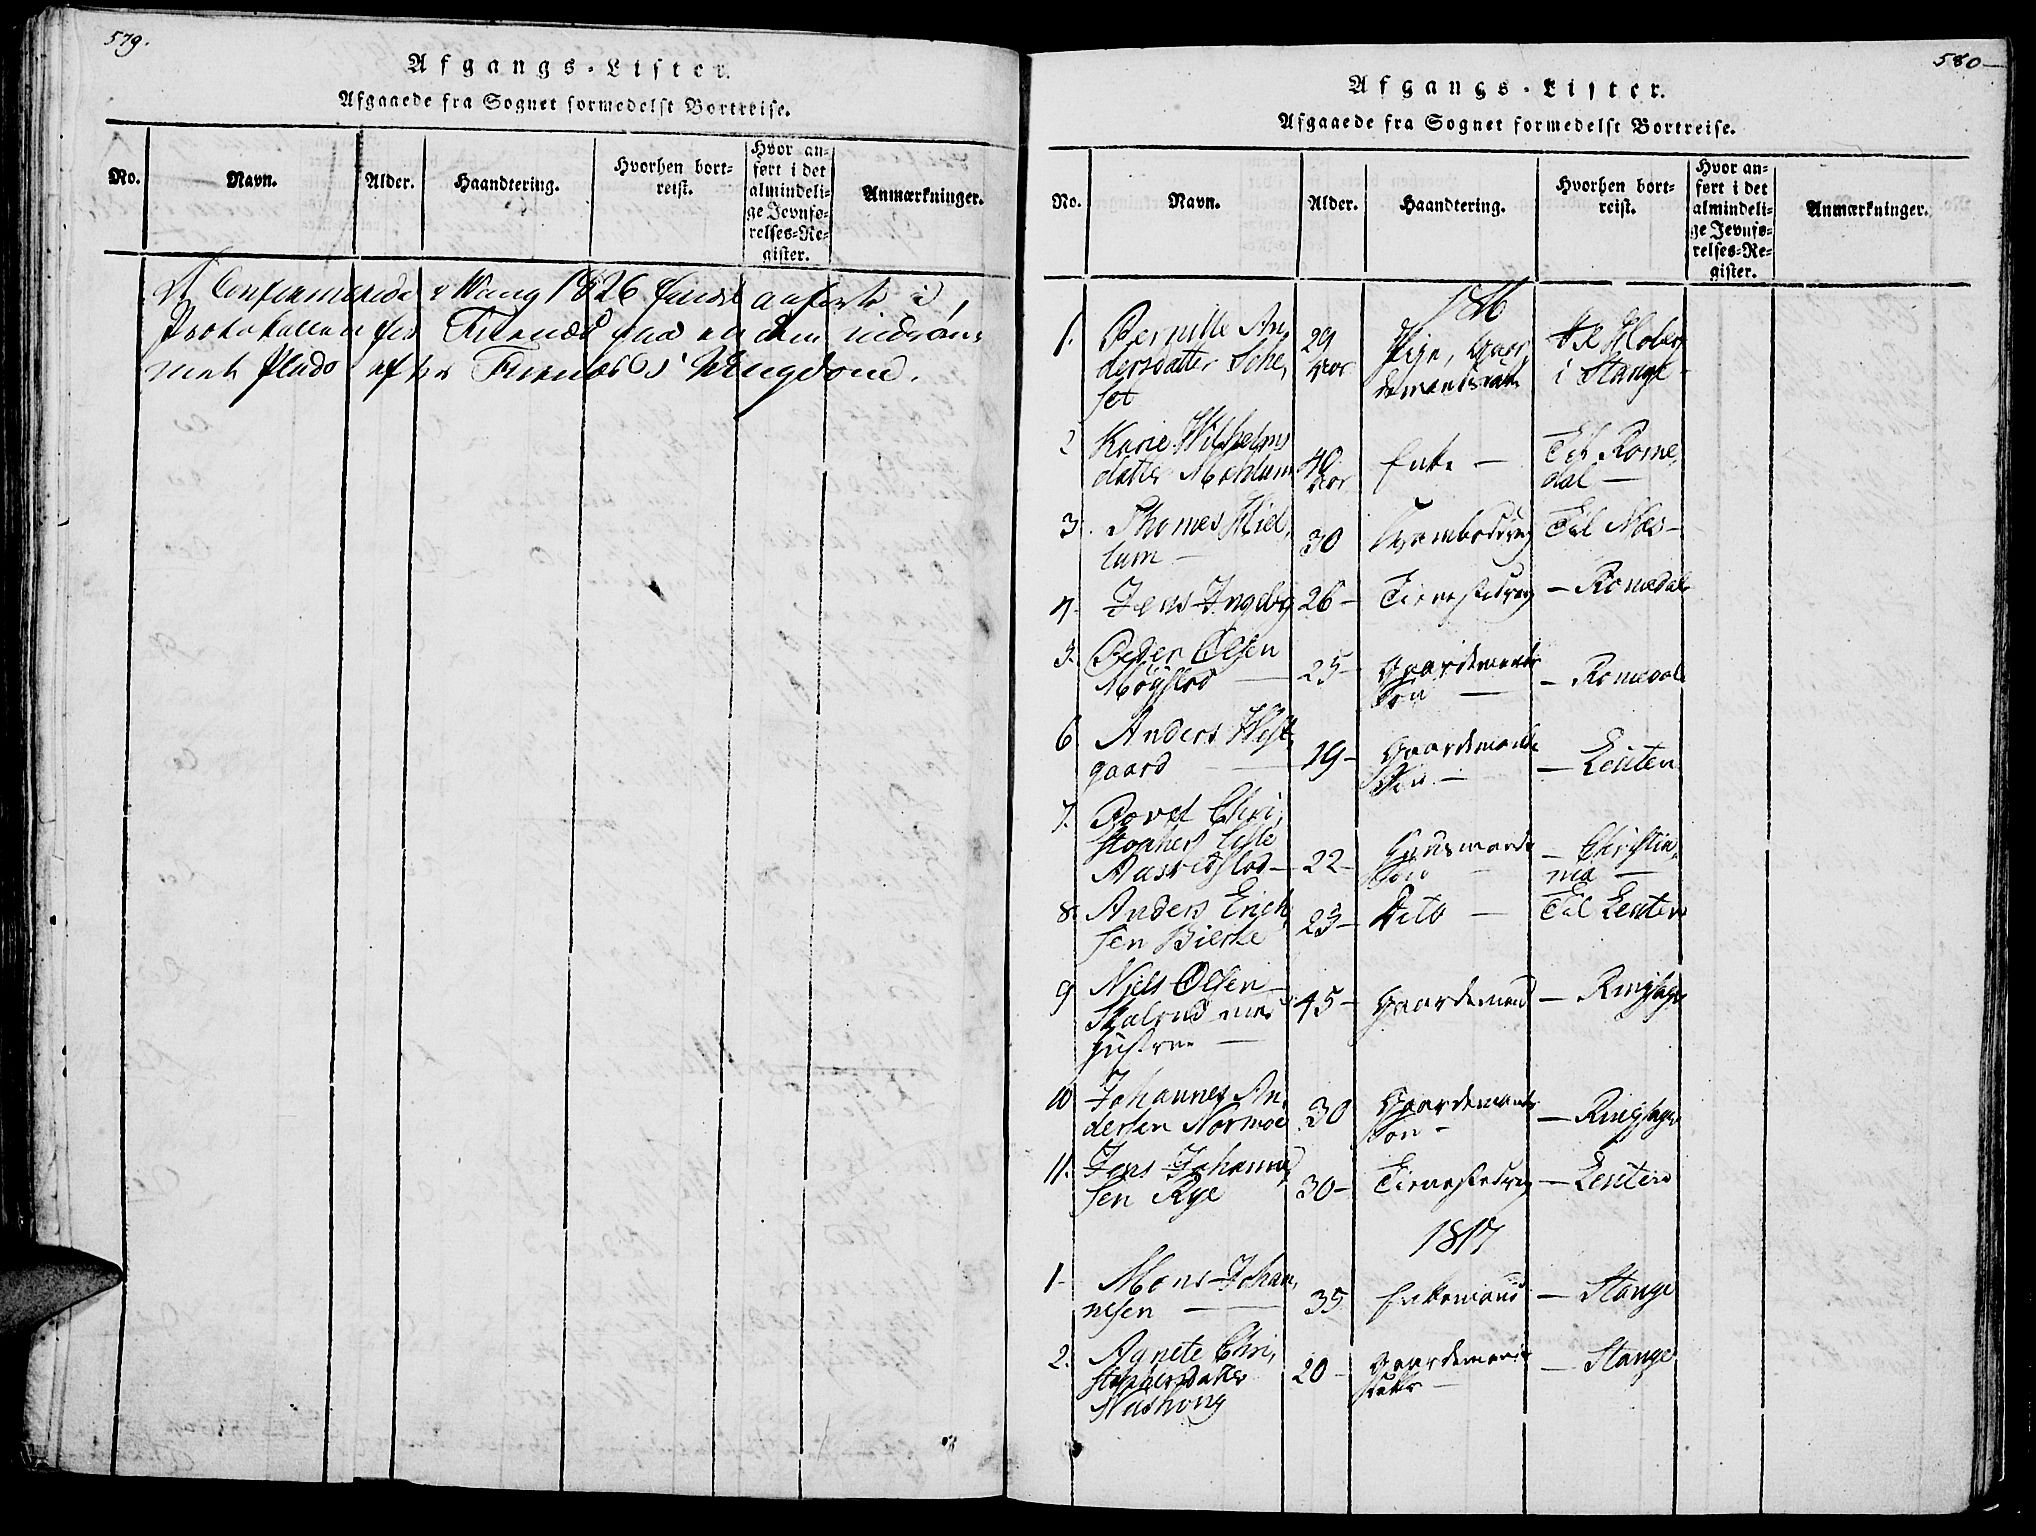 579.
Afgangs-Lister.
Afgaaede fra Sognet formedelst Bortreise.
No.
Navn.
Alder.
Haandtering.
Hvorhen bort-
reist.
Hvor an-
ført i det
almindeli-
ge Jevnfø-
relses-Re-
gister.
Anmærkninger.
Confirmerede i Wang 1826 findes anførte i
Protokollen for Furnæs paa en dem indrøm-
met Plads efter Furnæs's Ungdom.
580
Afgangs-Lister.
Afgaaede fra Sognet formedelst Bortreise.
No.
Navn.
Alder.
Haandtering.
Hvorhen bort-
reist.
Hvor an-
ført i det
almindeli-
ge Jevnfø-
relses-Re-
gister.
Anmærkninger.
1. Pernille An- 29 Pige, Gaar-
dersdatter Sche- Aar i Stange
set
2 Karie Wilhelms
datter Mæhlum 40 Aar Enke — Til Rome-
dal —
3. Thomes Kiel-
lum — 30 Til Næs —
4. Jens Ingeb 26 — Tienestedreng — Romedal
5. Peder Olsen
Mogstad — 25 — Gaardmands
Søn — — Romedal
6. Anders West-
gaard — 19 — Gaardmands
Søn — — Leuten
7. Povel Chri-
stophers Lille
Aasvedstad — 22 — Huusmands
Søn — — Christia-
nia —
8. Anders Erich-
sen Bierke 23 — Dito — Til Leuten
9 Niels Olsen
Skalrud med
Hustrue — 45 — Gaardmand — Ringsager
10 Johannes An-
dersen Normoe 30 Gaardmands
Søn — — Ringsager
11. Jens Johannes-
sen Rye 30 — Tienestedreng — Leuten
1817
1 — Mons Johan-
nesen — 35 Enkemand — Stange
2. Agnete Chri-
stophersdatter 20 — Gaardmands
datter — — Stange